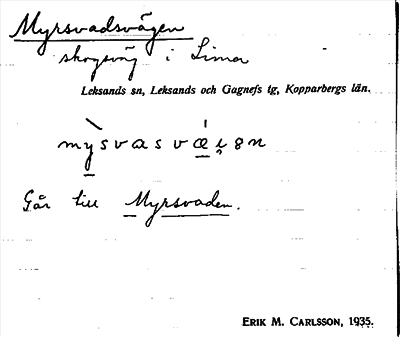 Myrsvadsvägen
skogsväg i Lima
Leksands sn, Leksands och Gagnefs tg, Kopparbergs län.
mỳsvasvǽi̯ən
Går till Myrsvaden.
ERIK M. CARLSSON, 1935.